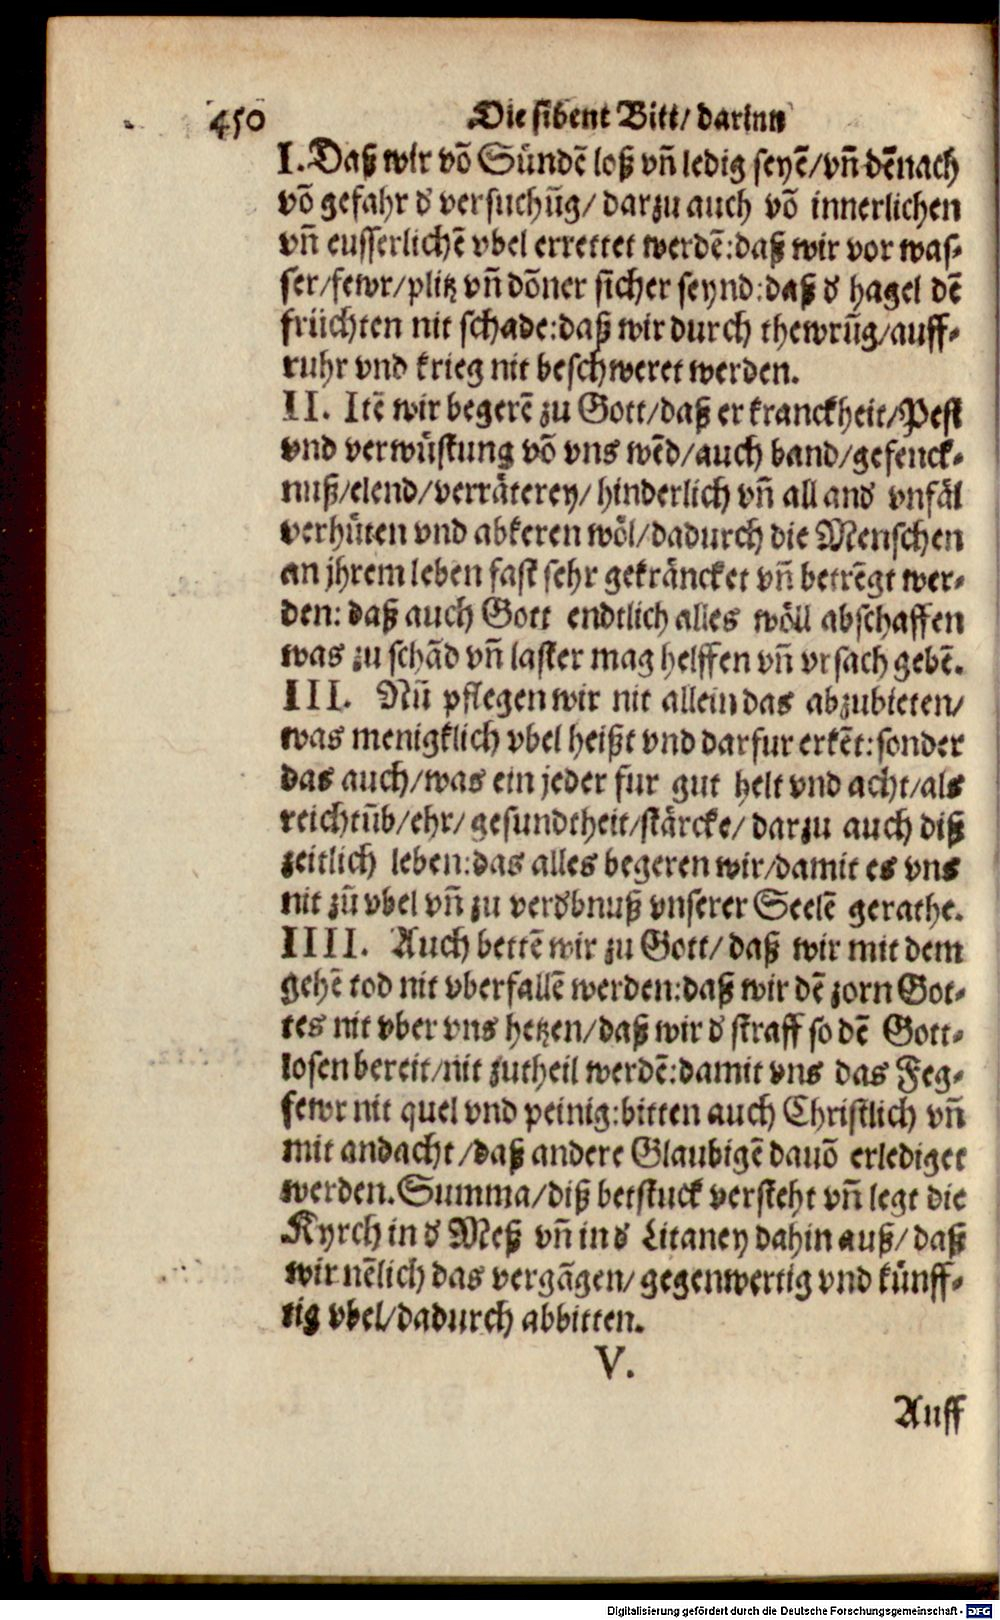 450 Die sibent Bitt/ darinn
I. Daß wir võ Sündẽ loß vñ ledig seyẽ/ vñ dẽnach
võ gefahr d versuchũg/ darzu auch võ innerlichen
vñ eusserlichẽ vbel errettet werdẽ: daß wir vor was-
ser/ fewr/ plitz vñ dõner sicher seynd: daß d hagel dẽ
früchten nit schade: daß wir durch thewrũg/ auff-
ruhr vnd krieg nit beschweret werden.
II. Itẽ wir begerẽ zu Gott/ daß er kranckheit/ Pest
vnd verwüstung võ vns wẽd/ auch band/ gefenck-
nuß/ elend/ verräterey/ hinderlich vñ all and vnfäl
verhüten vnd abkeren wöl/ dadurch die Menschen
an jhrem leben fast sehr gekräncket vñ betrẽgt wer-
den: daß auch Gott endtlich alles wöll abschaffen
was zu schãd vñ laster mag helffen vñ vrsach gebẽ.
III. Nũ pflegen wir nit allein das abzubieten/
was menigklich vbel heißt vnd darfur erkẽt: sonder
das auch/ was ein jeder fur gut helt vnd acht/ als
reichtũb/ ehr/ gesundtheit/ stärcke/ darzu auch diß
zeitlich leben: das alles begeren wir/ damit es vns
nit zũ vbel vñ zu verdbnuß vnserer Seelẽ gerathe.
IIII. Auch bettẽ wir zu Gott/ daß wir mit dem
gehẽ tod nit vberfallẽ werden: daß wir dẽ zorn Got-
tes nit vber vns hetzen/ daß wir d straff so dẽ Gott-
losen bereit/ nit zutheil werdẽ: damit vns das Feg-
fewr nit quel vnd peinig: bitten auch Christlich vñ
mit andacht/ daß andere Glaubigẽ dauõ erlediget
werden. Summa/ diß betstuck versteht vñ legt die
Kyrch in d Meß vñ in d Litaney dahin auß/ daß
wir nẽlich das vergãgen/ gegenwertig vnd künff-
tig vbel/ dadurch abbitten.
V.
Auff
Digitalisierung gefördert durch die Deutsche Forschungsgemeinschaft - DFG